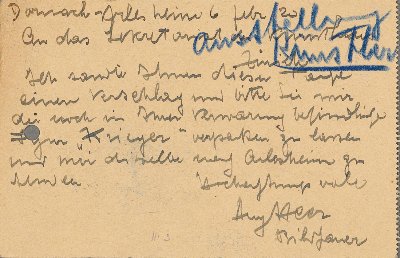 Dornach-Arlesheim 6 Febr 20
An das Sekretariat Kunsthaus
Ausstellung
Kunsthaus
Zürich
Ich sandte Ihnen diesen Tage
einen Verschlag und bitte Sie mir
die noch in Ihrer Verwarung befindliche
Figur "Krieger" verpacken zu lassen
und mir dieselbe nach Arlesheim zu
senden
Hochachtungsvoll
Aug Heer
Bildhauer